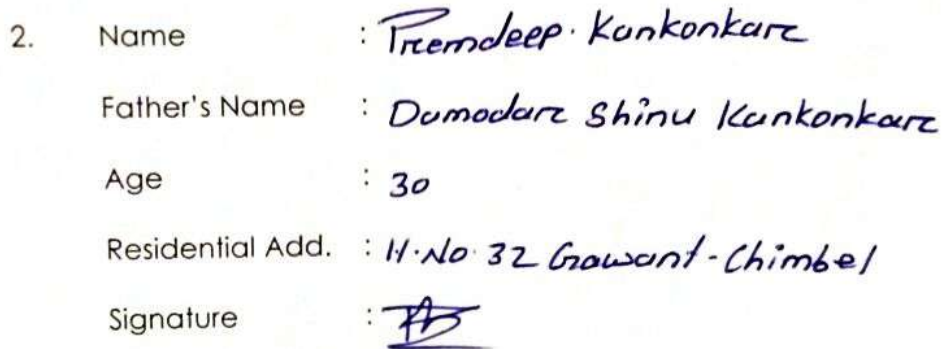 2. Name : Premdeep. Kankonkar
Father's Name : Damodar Shinu Kankonkar
Age : 30
Residential Add. : H.No. 32 Gawant-Chimbel
Signature :